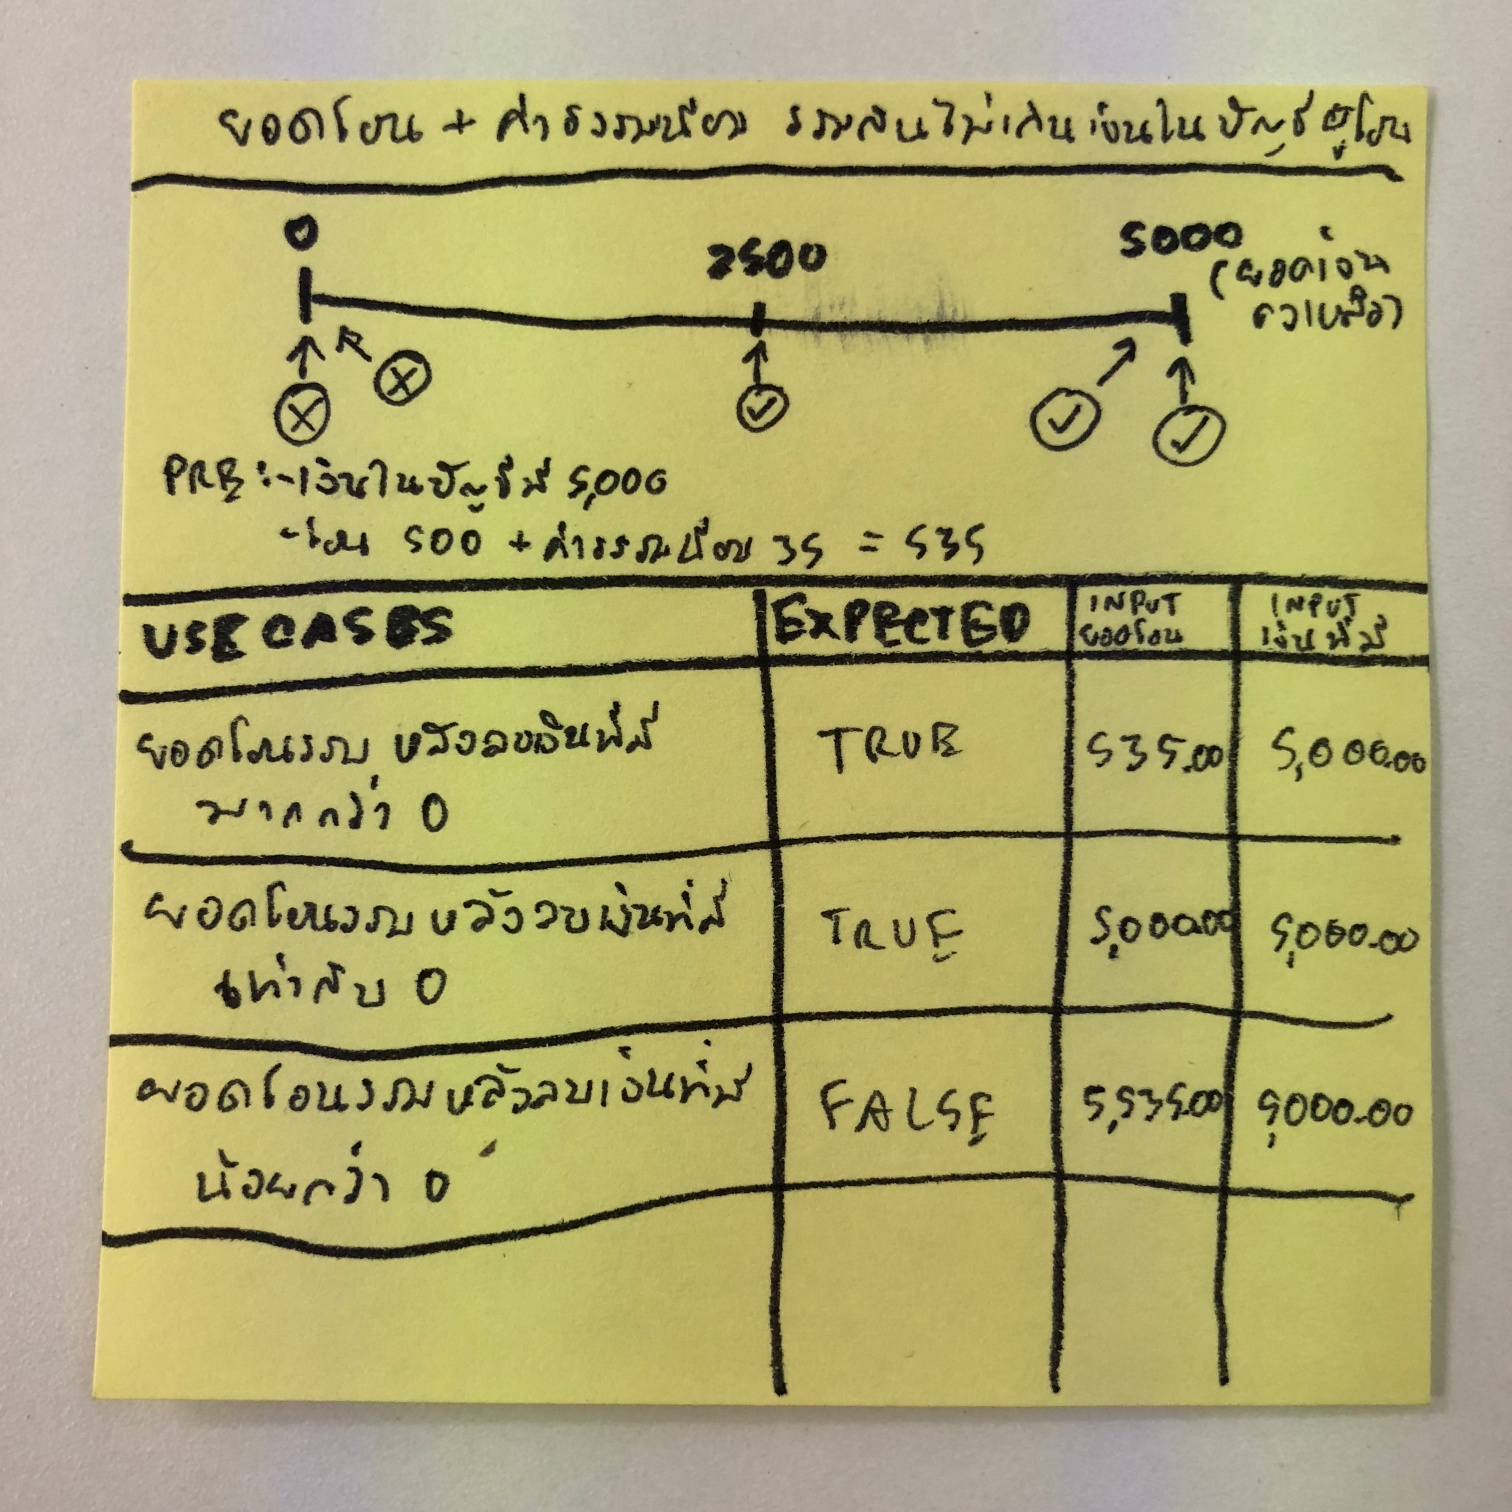 ยอดโอน + ค่าธรรมเนียม รวมกันไม่เกินเงินในบัญชีผู้โอน
0
2500
5000
(ยอดเงิน
คงเหลือ)
PRE :- เงินในบัญชีมี 5,000
- โอน 500 + ค่าธรรมเนียม 35 = 535
USE CASES EXPECTED INPUT ยอดโอน INPUT เงินที่มี
ยอดโอนรวม หลังลบเงินที่มี TRUE 535.00 5,000.00
มากกว่า 0
ยอดโอนรวม หลังลบเงินที่มี TRUE 5,000.00 5,000.00
เท่ากับ 0
ยอดโอนรวม หลังลบเงินที่มี FALSE 5,535.00 5,000.00
น้อยกว่า 0